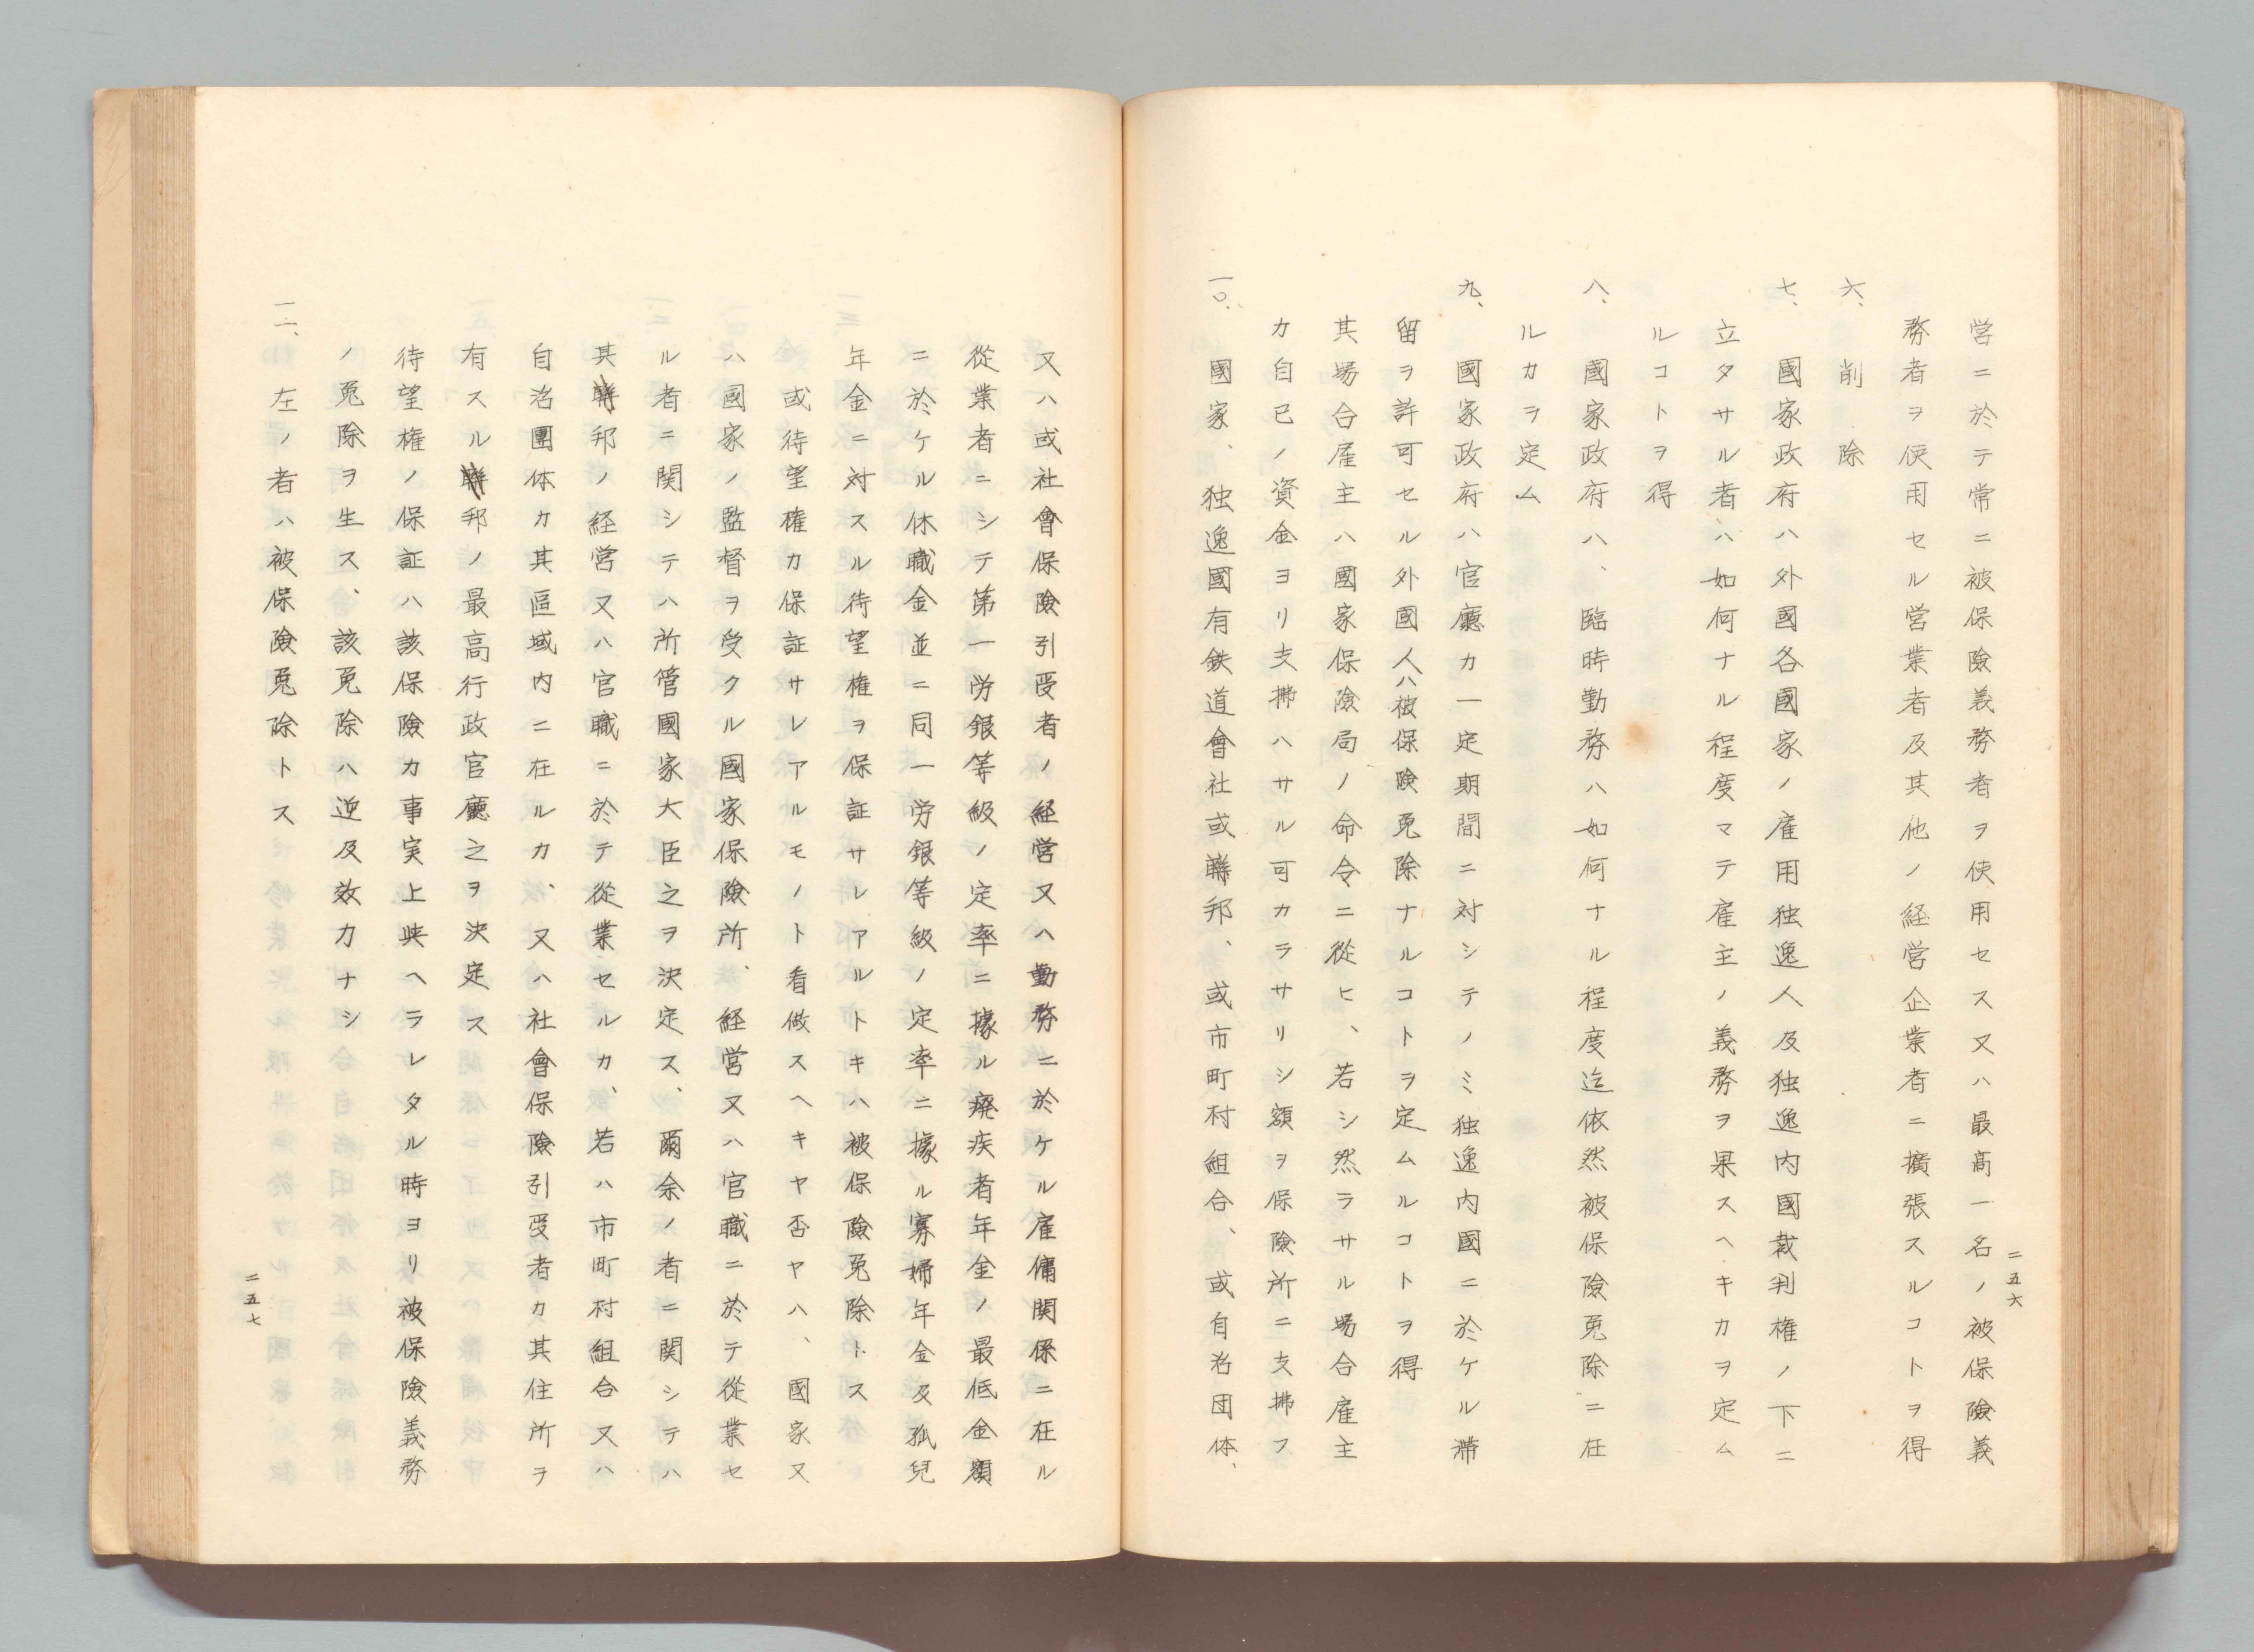 営ニ於テ常ニ被保險義務者ヲ使用セス又ハ最高一名ノ被保險義
務者ヲ使用セル営業者及其他ノ経営企業者ニ擴張スルコトヲ得
六、削除
七、國家政府ハ外國各國家ノ雇用独逸人及独逸内國裁判権ノ下ニ
立タサル者ハ如何ナル程度マテ雇主ノ義務ヲ果スヘキカヲ定ム
ルコトヲ得
八、國家政府ハ、臨時勤務ハ如何ナル程度迄依然被保險免除ニ在
ルカヲ定ム
九、國家政府ハ官廳カ一定期間ニ対シテノミ独逸内國ニ於ケル滞
留ヲ許可セル外國人ハ被保險免除ナルコトヲ定ムルコトヲ得
其場合雇主ハ國家保險局ノ命令ニ從ヒ、若シ然ラサル場合雇主
カ自己ノ資金ヨリ支拂ハサル可カラサリシ額ヲ保險所ニ支拂フ
一〇、國家、独逸國有鉄道會社或聯邦、或市町村組合、或自治団体、
二五六
又ハ或社會保險引受者ノ経営又ハ勤務ニ於ケル雇傭関係ニ在ル
從業者ニシテ第一労銀等級ノ定率ニ據ル癈疾者年金ノ最低金額
ニ於ケル休職金並ニ同一労銀等級ノ定率ニ據ル寡婦年金及孤兒
年金ニ対スル待望権ヲ保証サレアルトキハ被保險免除トス
或待望権カ保証サレアルモノト看做スヘキヤ否ヤハ、國家又
ハ國家ノ監督ヲ受クル國家保險所、経営又ハ官職ニ於テ從業セ
ル者ニ関シテハ所管國家大臣之ヲ決定ス、爾余ノ者ニ関シテハ
其聯邦ノ経営又ハ官職ニ於テ從業セルカ、若ハ市町村組合又ハ
自治團体カ其區域内ニ在ルカ、又ハ社會保險引受者カ其住所ヲ
有スル聯邦ノ最高行政官廳之ヲ決定ス
待望権ノ保証ハ該保險カ事実上與ヘラレタル時ヨリ被保險義務
ノ免除ヲ生ス、該免除ハ逆及效力ナシ
一一、左ノ者ハ被保險免除トス
二五七